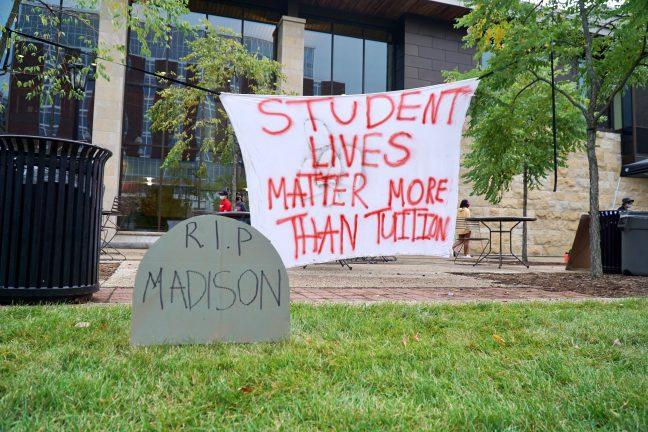 STUDENT
LIVES
MATTER MORE
THAN TUITION
R.I.P
MADISON